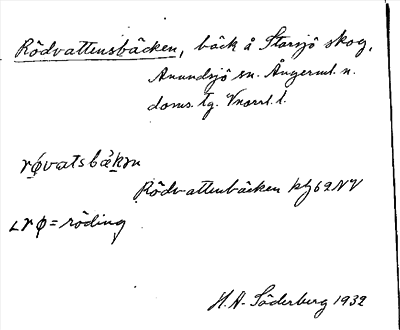 Rödvattensbäcken, bäck å Storsjö skog,
Anundsjö sn. Ångerml. n.
doms. tg. Vnorrl. l.
Rödvattenbäcken ktj 62 NV
< rø = röding
H. A. Söderberg 1932